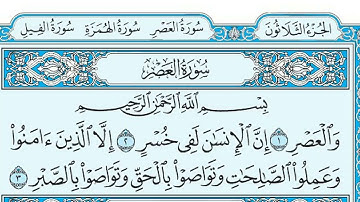 الجُزْءُ الثَّلَاثُونَ سُورَةُ العَصْرِ سُورَةُ الهُمَزَةِ سُورَةُ الفِيلِ
سُورَةُ العَصْرِ
بِسْمِ اللَّهِ الرَّحْمَٰنِ الرَّحِيمِ
وَالْعَصْرِ ۝١ إِنَّ الْإِنسَانَ لَفِي خُسْرٍ ۝٢ إِلَّا الَّذِينَ ءَامَنُوا
وَعَمِلُوا الصَّالِحَاتِ وَتَوَاصَوْا بِالْحَقِّ وَتَوَاصَوْا بِالصَّبْرِ ۝٣